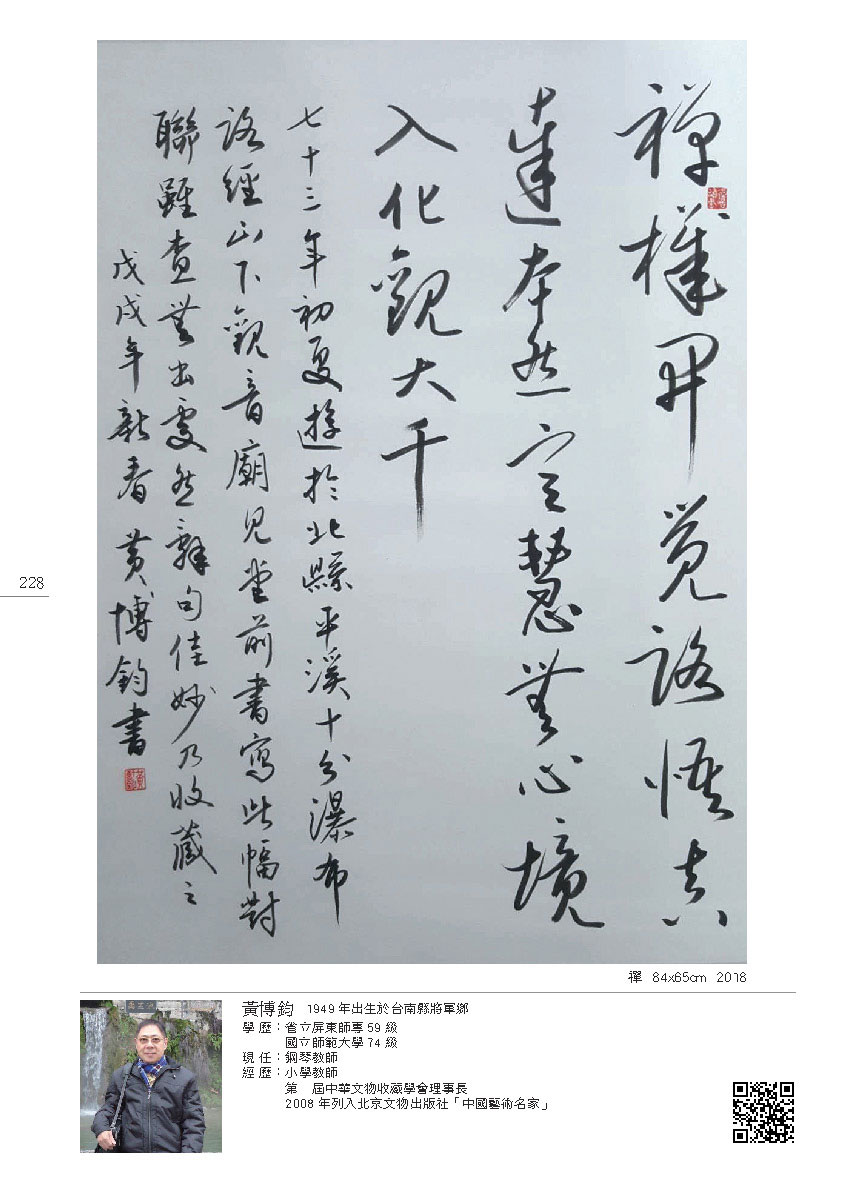 禪機開覺路悟真
達本然定慧無心境
入化觀大千
七十三年初夏遊於北縣平溪十分瀑布
路經山下觀音廟見堂前書寫此幅對
聯雖查無出處然辭句佳妙乃收藏之
戊戌年新春 黃博鈞書
228
禪 84x65cm 2018
黃博鈞 1949 年出生於台南縣將軍鄉
學 歷：省立屏東師專 59 級
國立師範大學 74 級
現 任：鋼琴教師
經 歷：小學教師
第 屆中華文物收藏學會理事長
2008 年列入北京文物出版社「中國藝術名家」